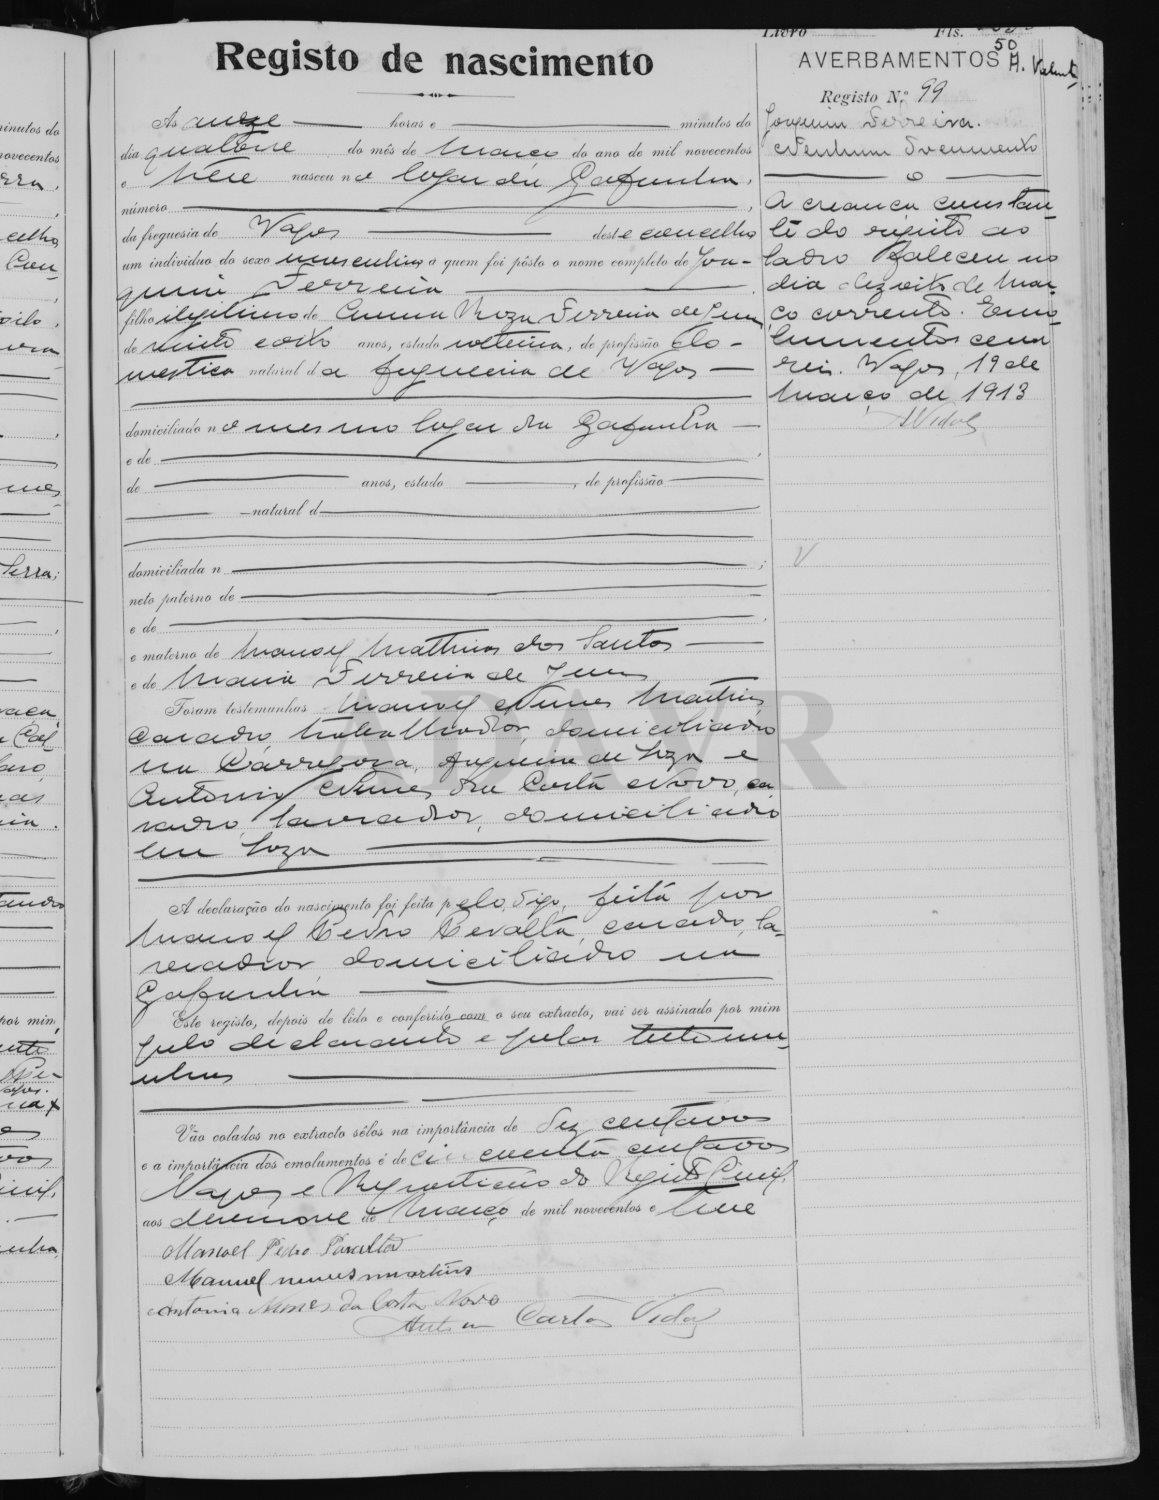 Livro Fls.
50
Registo de nascimento
AVERBAMENTOS
Registo N.º 99
Ás onze horas e minutos do
dia quatorze do mês de Março do ano de mil novecentos
e treze nasceu no logar da Gafanha,
número
da freguesia de Vagos deste concelho
um individuo do sexo masculino a quem foi pôsto o nome completo de Joa-
quim Ferreira
filho ilegitimo de Anna Roza Ferreira de Jesus
de vinte e oito anos, estado solteira, de profissão do-
mestica natural da freguesia de Vagos
domiciliado no mesmo logar da Gafanha
e de
de anos, estado , de profissão
natural d
domiciliada n ;
neto paterno de
e de
e materno de Manoel Matthias dos Santos
e de Maria Ferreira de Jesus
Foram testemunhas Manoel Nunes Martins,
casado, trabalhador, domiciliado
na Carregosa, freguesia de Soza e
Antonio Nunes da Costa Novo, ca-
sado, lavrador, domiciliado
em Soza
A declaração do nascimento foi feita pelo, digo, feita por
Manoel Pedro Ceralta, casado, la-
vrador, domiciliado na
Gafanha
Este registo, depois de lido e conferido com o seu extracto, vai ser assinado por mim
pelo declarante e pelas testemu-
nhas
Vão colados no extracto sêlos na importância de dez centavos
e a importância dos emolumentos é de cincoenta centavos
Vagos e Repartição do Registo Civil,
aos dezenove de Março de mil novecentos e treze
Manoel Pedro
Manuel nunes martins
Antonio Nunes da Costa Novo
Carlos Vidal
Joaquim Ferreira.
Nenhum Documento
A creança constan-
te do registo ao
lado Faleceu no
dia dezoito de Mar-
ço corrente. Emo-
lumentos cem
reis. Vagos, 19 de
Março de 1913
AVidal
ADAVR